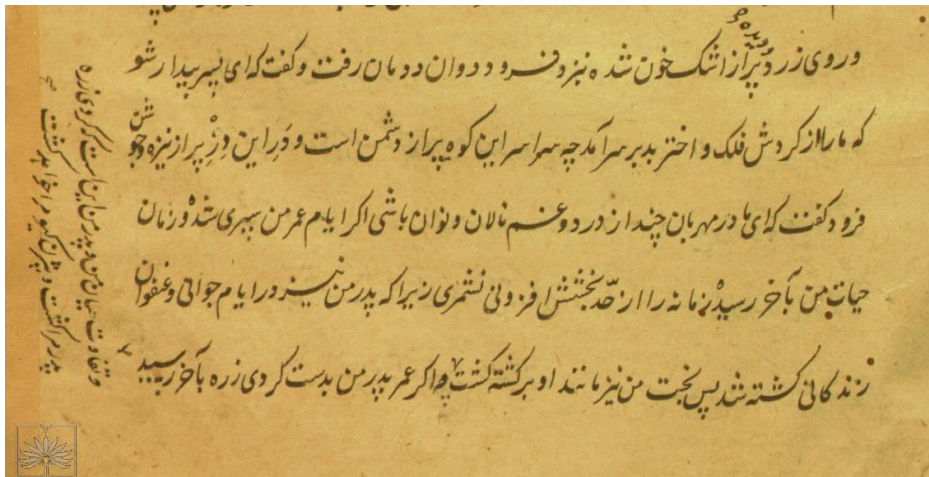 و روی زرد و پر از اشک خون شده نزد فرود دوان دوان رفت و گفت که ای پسر بیدار شو
که ما را از گردش فلک و اختر بد بر سر آمد چه سراسر این کوه پر از دشمن است و در این دِژ پر از نیزه و جوشن
فرود گفت که ای مادر مهربان چند از درد و غم نالان و نوان باشی اگر ایام عمر من سپری شده و زمان
حیات من بآخر رسیده زمانه را از حد بخشش افزونی نشمری زیرا که پدر من نیز در ایام جوانی و عنفوان
زندگانی کشته شد پس بخت من نیز مانند او برگشته گشت چه اگر عمر پدر من بدست گروی زره بآخر رسید
و تفاوت میان من و پدر من این است که گروی زره
پدر مرا کشت و بیژن گیو مرا خواهد کشت